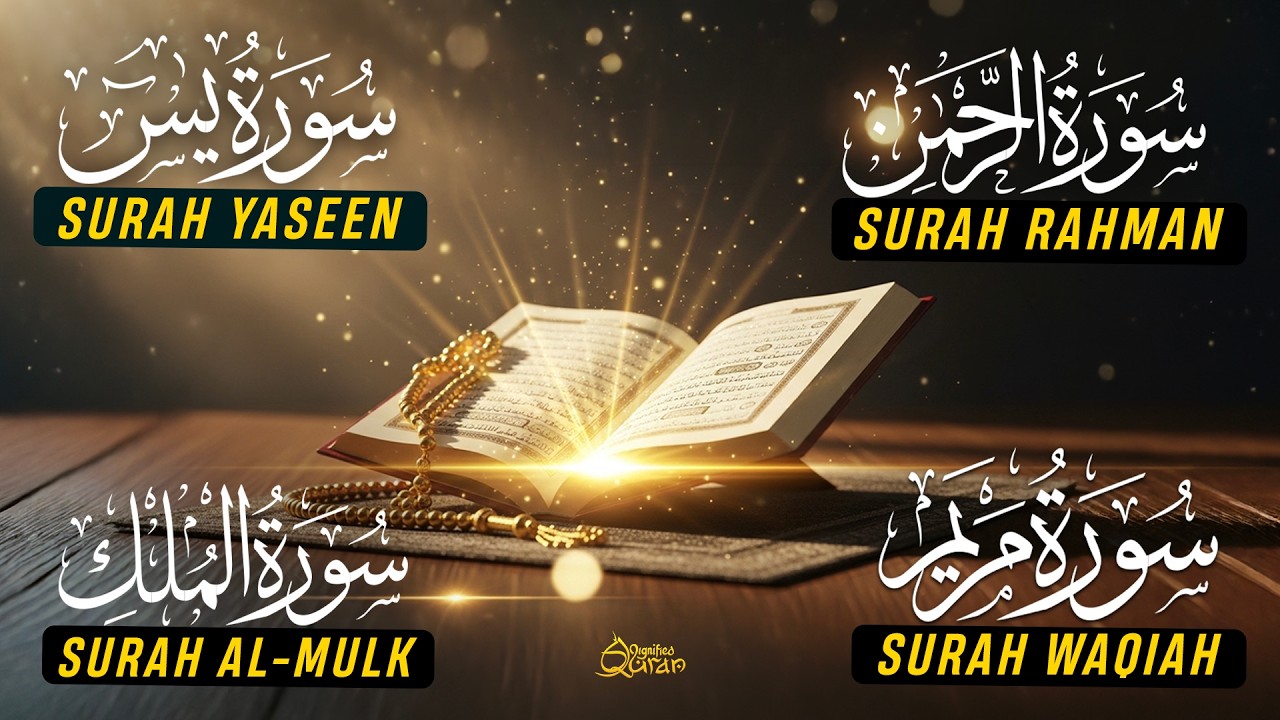 سُورَةُ يٰسٓ
SURAH YASEEN
سُورَةُ الرَّحْمٰنِ
SURAH RAHMAN
سُورَةُ الْمُلْكِ
SURAH AL-MULK
سُورَةُ مَرْيَم
SURAH WAQIAH
Dignified
Quran